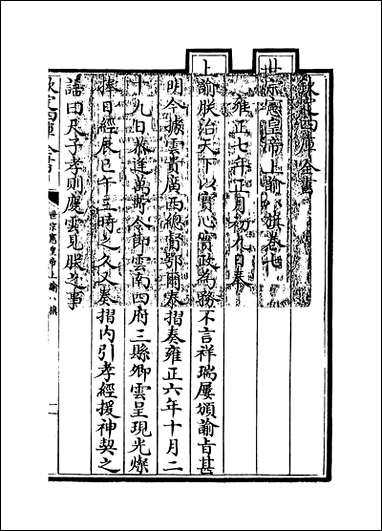 欽定四庫全書
世宗憲皇帝上諭八旗卷七
雍正七年正月初八日奉
上諭朕治天下以實心實政為務不言祥瑞屢頒諭旨甚
明今據雲貴廣西總督鄂爾泰摺奏雍正六年十月二
十九日恭逢萬壽令節雲南四府三縣卿雲呈現光燦
捧日經辰巳午三時之久又奏摺內引孝經援神契之
語曰天子孝則慶雲見朕之事
欽定四庫全書
世宗憲皇帝上諭八旗